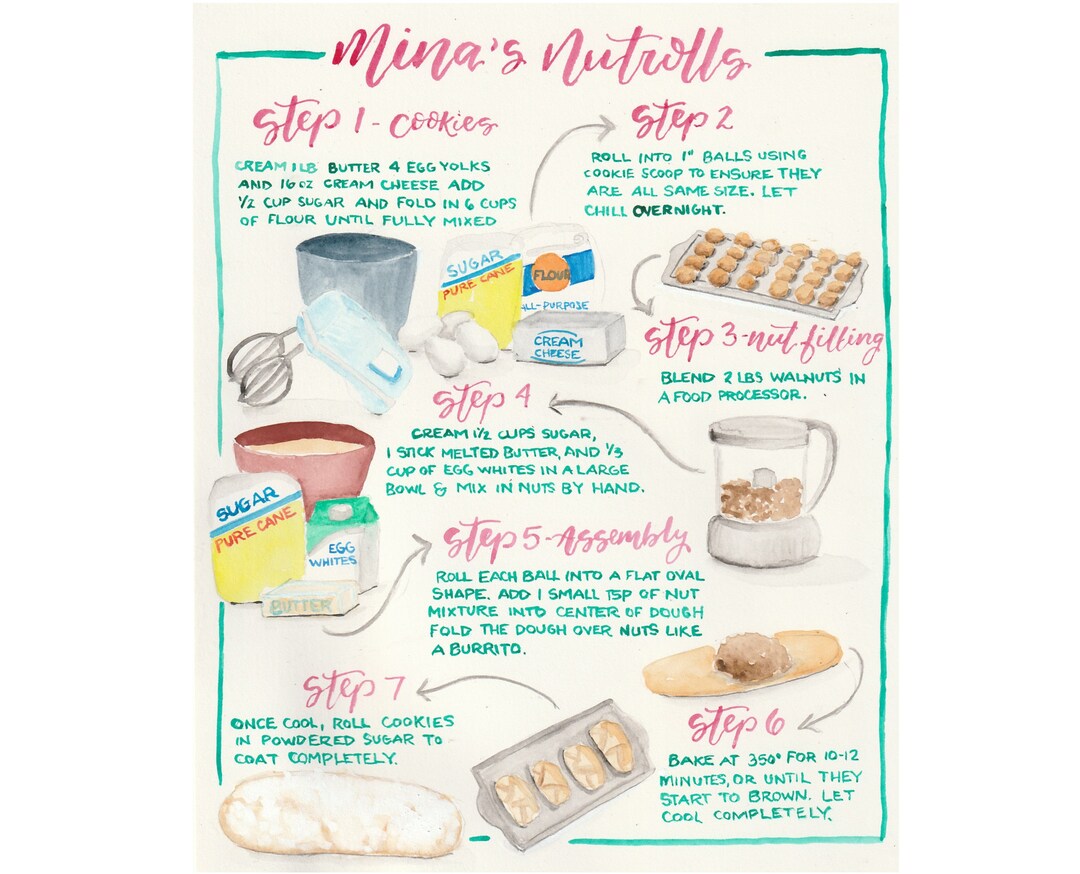 Mina's Nutrolls
Step 1 - Cookies
CREAM 1 LB BUTTER 4 EGG YOLKS
AND 16 OZ CREAM CHEESE ADD
1/2 CUP SUGAR AND FOLD IN 6 CUPS
OF FLOUR UNTIL FULLY MIXED
Step 2
ROLL INTO 1" BALLS USING
COOKIE SCOOP TO ENSURE THEY
ARE ALL SAME SIZE. LET
CHILL OVERNIGHT.
SUGAR
PURE CANE
FLOUR
ALL-PURPOSE
CREAM
CHEESE
Step 3 - nut filling
BLEND 2 LBS WALNUTS IN
A FOOD PROCESSOR.
Step 4
CREAM 1 1/2 CUPS SUGAR,
1 STICK MELTED BUTTER, AND 1/3
CUP OF EGG WHITES IN A LARGE
BOWL & MIX IN NUTS BY HAND.
SUGAR
PURE CANE
EGG
WHITES
BUTTER
Step 5 - Assembly
ROLL EACH BALL INTO A FLAT OVAL
SHAPE. ADD 1 SMALL TSP OF NUT
MIXTURE INTO CENTER OF DOUGH
FOLD THE DOUGH OVER NUTS LIKE
A BURRITO.
Step 6
BAKE AT 350° FOR 10-12
MINUTES, OR UNTIL THEY
START TO BROWN. LET
COOL COMPLETELY.
Step 7
ONCE COOL, ROLL COOKIES
IN POWDERED SUGAR TO
COAT COMPLETELY.